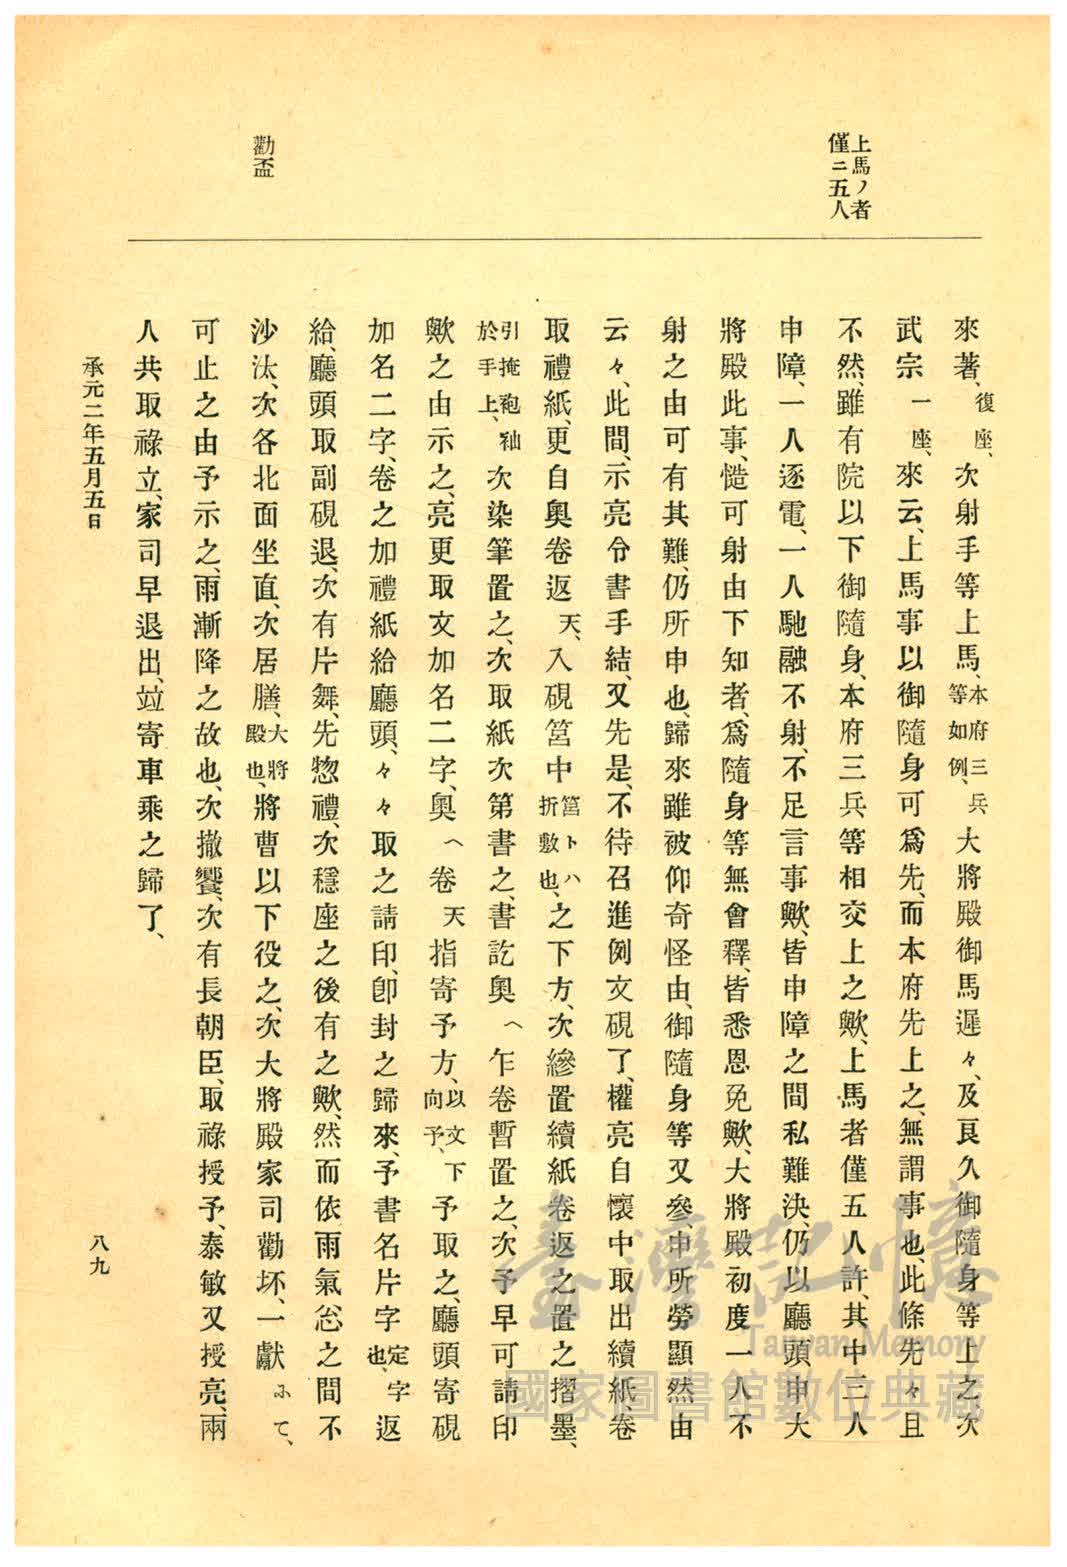 上馬ノ者
僅ニ五人
勸盃
來著、復座、次射手等上馬、本府三兵等如例、大將殿御馬遲々、及良久御隨身等上之、次
武宗一座、來云、上馬事以御隨身可爲先、而本府先上之、無謂事也、此條先々且
不然、雖有院以下御隨身、本府三兵等相交上之歟、上馬者僅五人許、其中三人
申障、一人逐電、一人馳融不射、不足言事歟、皆申障之間私難決、仍以廳頭申大
將殿此事、慥可射由下知者、爲隨身等無會釋、皆悉恩免歟、大將殿初度一人不
射之由可有其難、仍所申也、歸來雖被仰奇怪由、御隨身等又參、申所勞顯然由
云々、此間、示亮令書手結、又先是、不待召進例文硯了、權亮自懷中取出續紙、卷
取禮紙、更自奧卷返天、入硯筥中筥トハ折敷也、之下方、次縿置續紙卷返之置之摺墨、
引掩袍袖於手上、次染筆置之、次取紙次第書之、書訖奧ヘ乍卷暫置之、次予早可請印
歟之由示之、亮更取文加名二字、奧ヘ卷天指寄予方、以文下向予、予取之、廳頭寄硯
加名二字、卷之加禮紙給廳頭、々々取之請印、卽封之歸來、予書名片字定字也、返
給、廳頭取副硯退、次有片舞、先惣禮、次穩座之後有之歟、然而依雨氣忩之間不
沙汰、次各北面坐直、次居膳、大將殿也、將曹以下役之、次大將殿家司勸坏、一獻ふて、
可止之由予示之、雨漸降之故也、次撤饗、次有長朝臣、取祿授予、泰敏又授亮、兩
人共取祿立、家司早退出、竝寄車乘之歸了、
承元二年五月五日
八九
臺灣記憶
Taiwan Memory
國家圖書館數位典藏